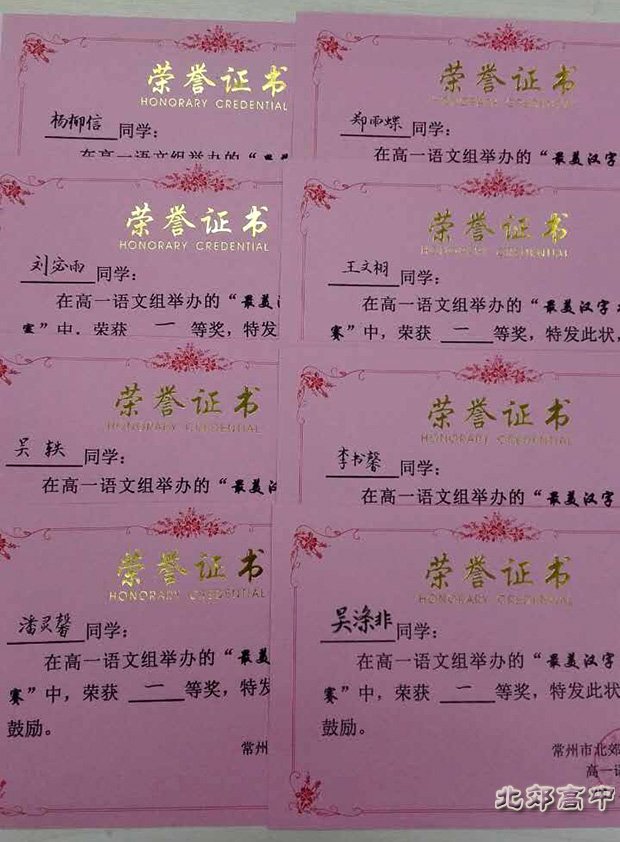 荣誉证书
HONORARY CREDENTIAL
杨柳信同学：
在高一语文组举办的“最美
荣誉证书
HONORARY CREDENTIAL
郑雨蝶同学：
在高一语文组举办的“最美汉字
荣誉证书
HONORARY CREDENTIAL
刘宓雨同学：
在高一语文组举办的“最美
赛”中，荣获 一 等奖，特发
荣誉证书
HONORARY CREDENTIAL
王文栩同学：
在高一语文组举办的“最美汉字
赛”中，荣获 二 等奖，特发此状，
荣誉证书
HONORARY CREDENTIAL
吴轶同学：
在高一语文组举办的“最美汉
荣誉证书
HONORARY CREDENTIAL
李书馨同学：
在高一语文组举办的“最美汉字
荣誉证书
HONORARY CREDENTIAL
潘灵馨同学：
在高一语文组举办的“最美
赛”中，荣获 二 等奖，特发
鼓励。
常州
荣誉证书
HONORARY CREDENTIAL
吴涤非同学：
在高一语文组举办的“最美汉字
赛”中，荣获 二 等奖，特发此状
鼓励。
常州市北郊
高一语
北郊高中